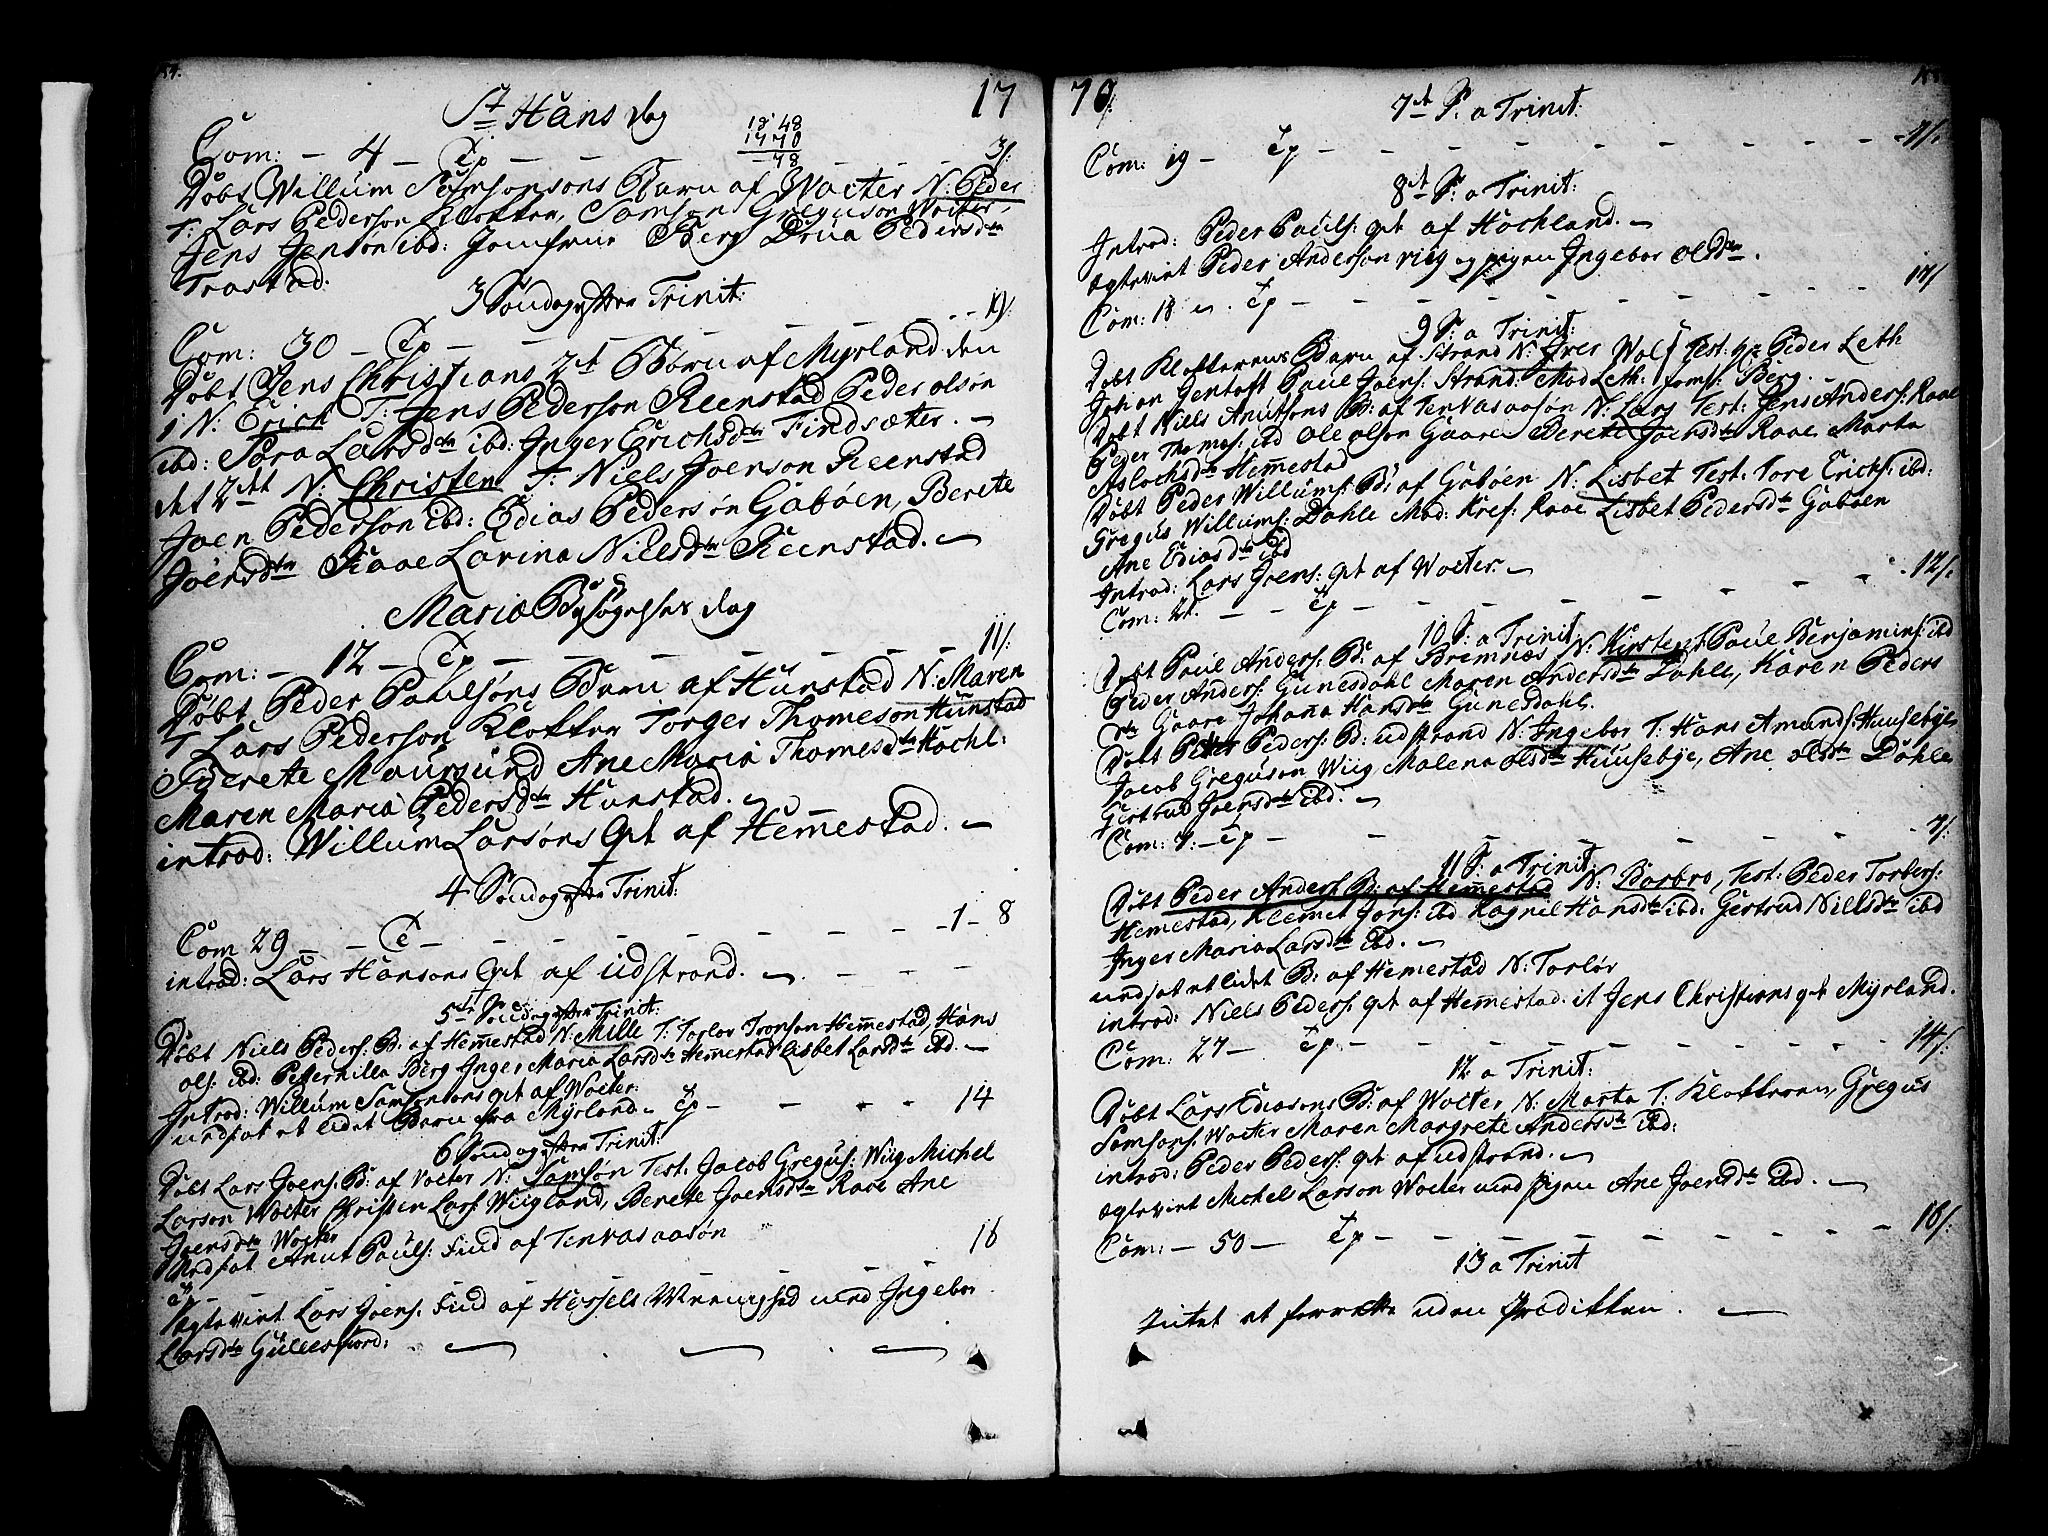 17
St Hans dag
18 48
17 70
78
Com: — 4 — Cp — — — — 3/:
Døbt Willum Samsonsøns Barn af Woeter N: Peder
T: Lars Pederson Klokker, Samson Greguson Woeter,
Jens Jenson ibd: Jomfrue Berg Drua Pedersdtr
Trastad.
3 Søndag efter Trinit:
Com: 30 — Cp — — — — 19/:
Døbt Jens Christians 2de Børn af Myrland den
1 N: Erich T: Jens Pederson Reenstad Peder olsøn
ibd: Sara Larsdtr ibd: Inger Erichsdtr Findsæter. —
det 2det N: Christen T: Niels Joenson Reenstad
Joen Pedersøn ibd: Edias Pedersøn Gaböen, Berete
Joensdtr Raae Larina Nielsdtr Reenstad. —
Mariæ Besøgelses dag
Com: — 12 — Cp — — — — 11/:
Døbt Peder Paulsøns Barn af Hunstad N: Maren
T Lars Pederson Klokker Torger Thomeson Hunstad
Berete Maursund Ane Maria Thomesdtr Hochl:
Maren Maria Pedersdtr Hunstad. —
introd: Willum Larsøns Qvt af Hemmestad. —
4 Søndag efter Trinit:
Com 29 — — C — — — — — 1 — 8
introd: Lars Hansons Qvt af udstrand. —
5te Søndag efter Trinit:
Døbt Niels Peders: B: af Hemmestad N: Mille T: Torlor Tronson Hemmestad, Hans
ols: ibd: Petternilla Berg Inger Maria Larsdtr Hemmestad Lisbet Larsdtr ibd. —
Introd: Willum Samsonsøns qvt af Woeter:
nedsat et lidet Barn fra Myrland. Cp — — — — 14
6 Søndag efter Trinit:
Døbt Lars Joens: B: af Voeter N: Samsøn Test: Jacob Gregus: Wiig Michel
Larson Woeter Christen Lars: Wiigland, Berete Joensdtr Raae Ane
Joensdtr Woeter
Nedsat Anut Pauls: Find af Tenvasaasøn
Cp — — 16
Ægteviet Lars Joens: Find af Hessels Menighed med Ingebor
Larsdtr Gullesfiord: —
70/.
7de S: a Trinit:
Com: 19 — Cp — — — — — 7/:
8de S: a Trinit:
Introd: Peder Pauls: qvt af Hochland. —
Ægteviet Peder Anderson viig og pigen Ingebor olsdtr.
Com: 18 — Cp — — — — 17/
9 S: a Trinit:
Døbt Klokkerens Barn af Strand N: Iver Wolf Test: Hr Peder Leth
Johan Jentoft Paul Joens: Strand: Mad Leth: Jomf: Berg.
Døbt Niels Anutsøns B: af Tenvasaasøn N: Lars Test: Jens Anders: Raae
Peder Thomas: ibd Ole olson Gaare Berete Joensdtr Raae Marta
Aslochsdtr Hemmestad
Døbt Peder Willums: B: af Gaböen N: Lisbet Test: Tore Erichs: ibd:
Gregus Willums: Dahle Mad: Kref: Raae Lisbet Pedersdtr Gaböen
Ane Ediasdtr ibd
Introd: Lars Joens: qvt af Woeter. —
Com: 21. — — Cp — — — — 12/:
10 S: a Trinit
Døbt Paul Anders: B: af Bremnæs N: Kirsten T: Paul Benjamins: ibd
Peder Anders: Gunesdahl Maren Andersdtr Dahle, Karen Peders
dtr Gaare Johana Hansdtr Gunesdahl.
Døbt Peder Peders: B: udstrand N: Ingebor T: Hans Amunds: Huusebye
Jacob Greguson Wiig Malena olsdtr Huusebye, Ane olsdtr Dahle
Gertrud Joensdtr ibd. —
Com: 7: — Cp — — — — — 7/:
11 S: a Trinit:
Døbt Peder Anders: B: af Hemmestad N: Barbro, Test: Peder Torlers:
Hemestad, Klemet Jons: ibd Ragnel Hansdtr ibd: Gertrud Nielsdtr ibd
Inger Maria Larsdtr ibd. —
nedsat et lidet B: af Hemestad N: Torlør
introd: Niels Peders: qvt af Hemmestad. it Jens Christians qvt Myrland.
Com: 27 — Cp — — — — — 14/:
12 a Trinit:
Døbt Lars Ediasons B: af Woeter N: Marta T: Klokkeren, Gregus
Samsons: Woeter Maren Margrete Andersdtr ibd:
introd: Peder Peders: qvt af udstrand. —
Ægteviet Michel Larson Woeter med pigen Ane Joensdtr ibd. —
Com: — 50 — Cp — — — — — 16/:
13 a Trinit
Intet at forrette uden Prediken. —